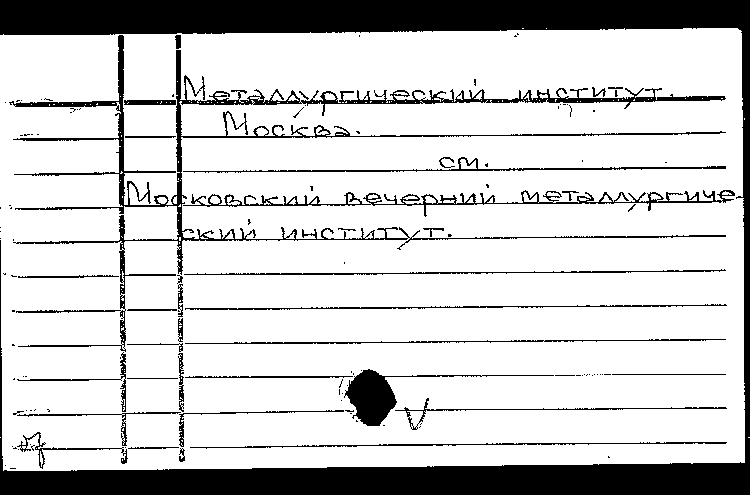 Металлургический институт.
Москва.
см.
Московский вечерний металлургиче-
ский институт.
V